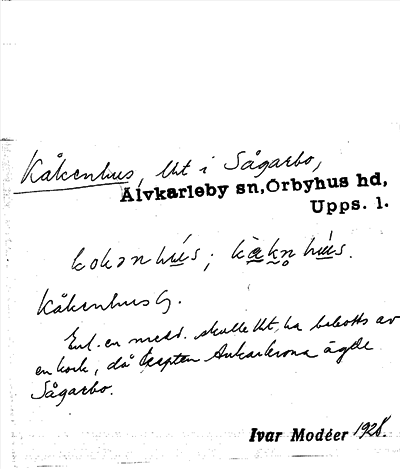 Kåkenhus, lht i Sågarbo,
Älvkarleby sn, Örbyhus hd,
Upps. l.
kokənhu̲s; kåkn̥hú̲s.
Kåkenhus
Enl. en medd. skulle lht. ha bebotts av
en kock, då kapten Ankarkrona ägde
Sågarbo.
Ivar Modéer 1928.